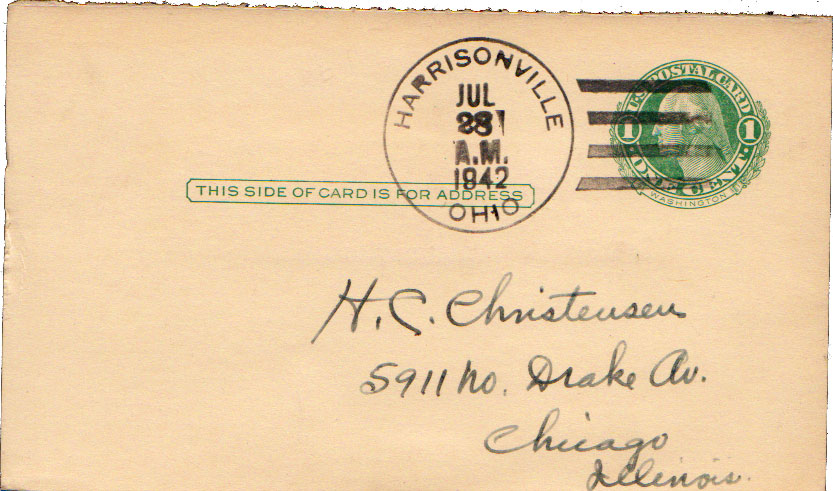 HARRISONVILLE
JUL
28
A.M.
1942
OHIO
U.S. POSTAL CARD
1 1
ONE CENT
WASHINGTON
THIS SIDE OF CARD IS FOR ADDRESS
H. C. Christensen
5911 No. Drake Av.
Chicago
Illinois.